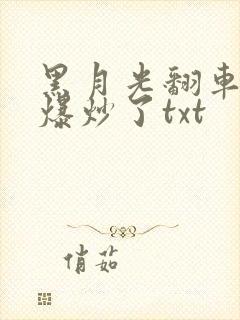 黑月光翻車
爆炒了txt
俏茹